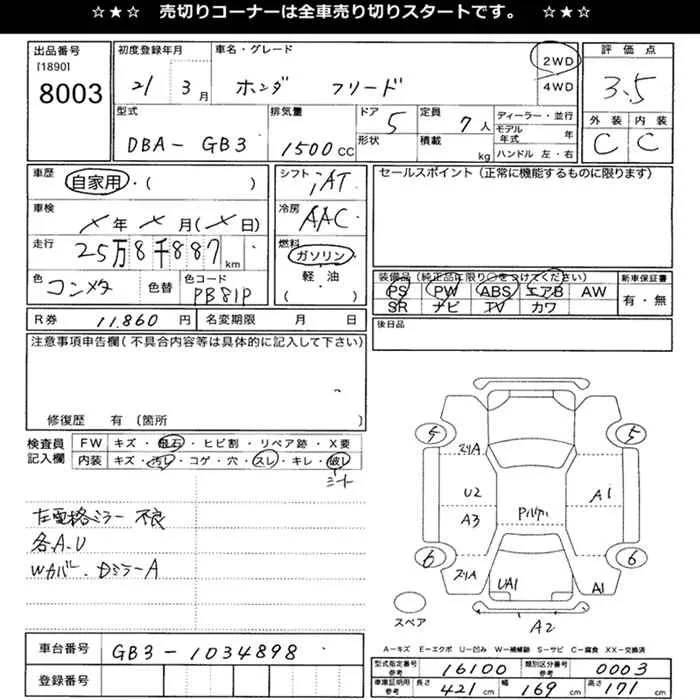 ☆★☆ 売切りコーナーは全車売り切りスタートです。 ☆★☆
出品番号 初度登録年月 車名・グレード 2WD 評価点
[1890] 4WD
8003 21 3月 ホンダ フリード 3.5
型式 排気量 ドア 定員 ディーラー・並行 外装 内装
DBA-GB3 1500CC 5 7人 モデル年式 年 C C
形状 積載 kg ハンドル 左・右
車歴 自家用・( ) シフト IAT セールスポイント(正常に機能するものに限ります)
車検 × 年 × 月(× 日) 冷房 AAC
走行 25万8千887km 燃料 ガソリン
軽・油
( )
色 コンメタ 色替 色コード PB81P
装備品(純正品に限り○をつけてください) 新車保証書
PS PW ABS エアB AW 有・無
SR ナビ TV カワ
R券 11,860円 名変期限 月 日 後日品
注意事項申告欄(不具合内容等は具体的に記入して下さい)
修復歴 有〔箇所
検査員 FW キズ・飛石・ヒビ割・リペア跡・X要
記入欄 内装 キズ・汚レ・コゲ・穴・スレ・キレ・破レ
シート
左電格ミラー 不良
各A.U
Wカバー.DミラーA
5 5
スリA
U2 A1
A3
6 6
スリA UA1 A1
スペア A2
A-キズ E-エクボ U-凹み W-補修跡 S-サビ C-腐食 XX-交換済
車台番号 GB3-1034898
登録番号
型式指定番号 参考 16100 類別区分番号 参考 0003
車庫証明用 参考 長さ 421cm 幅 169cm 高さ 171cm